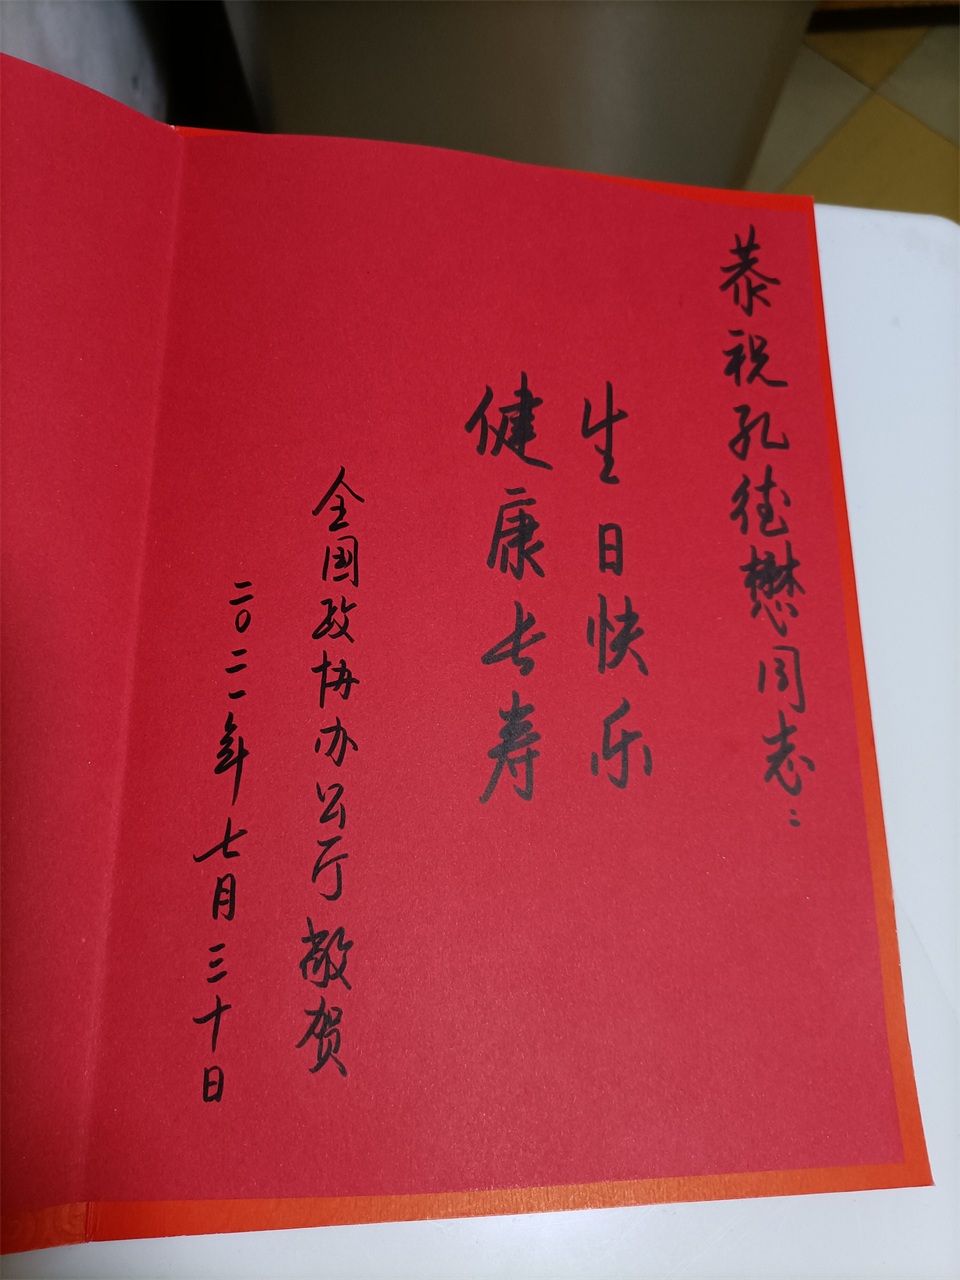 恭祝孔德懋同志:
生日快乐
健康长寿
全国政协办公厅敬贺
二〇二一年七月三十日